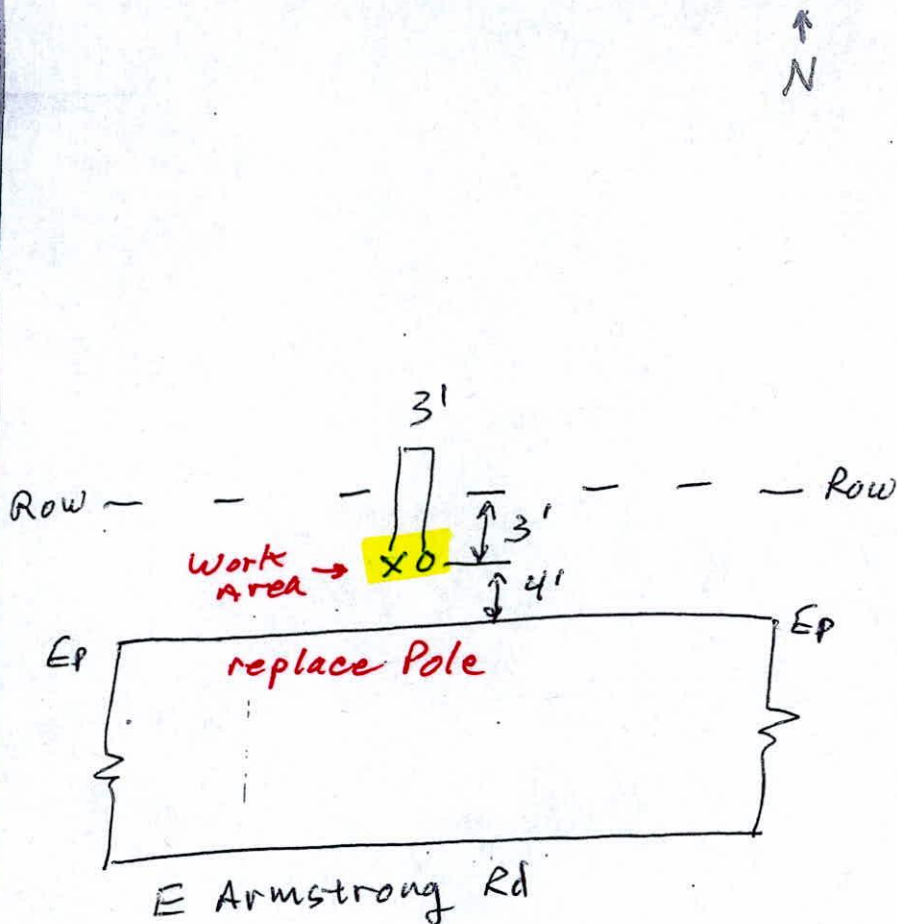 N
3'
Row
Row
3'
Work
Area
X O
4'
Ep
Ep
replace Pole
E Armstrong Rd